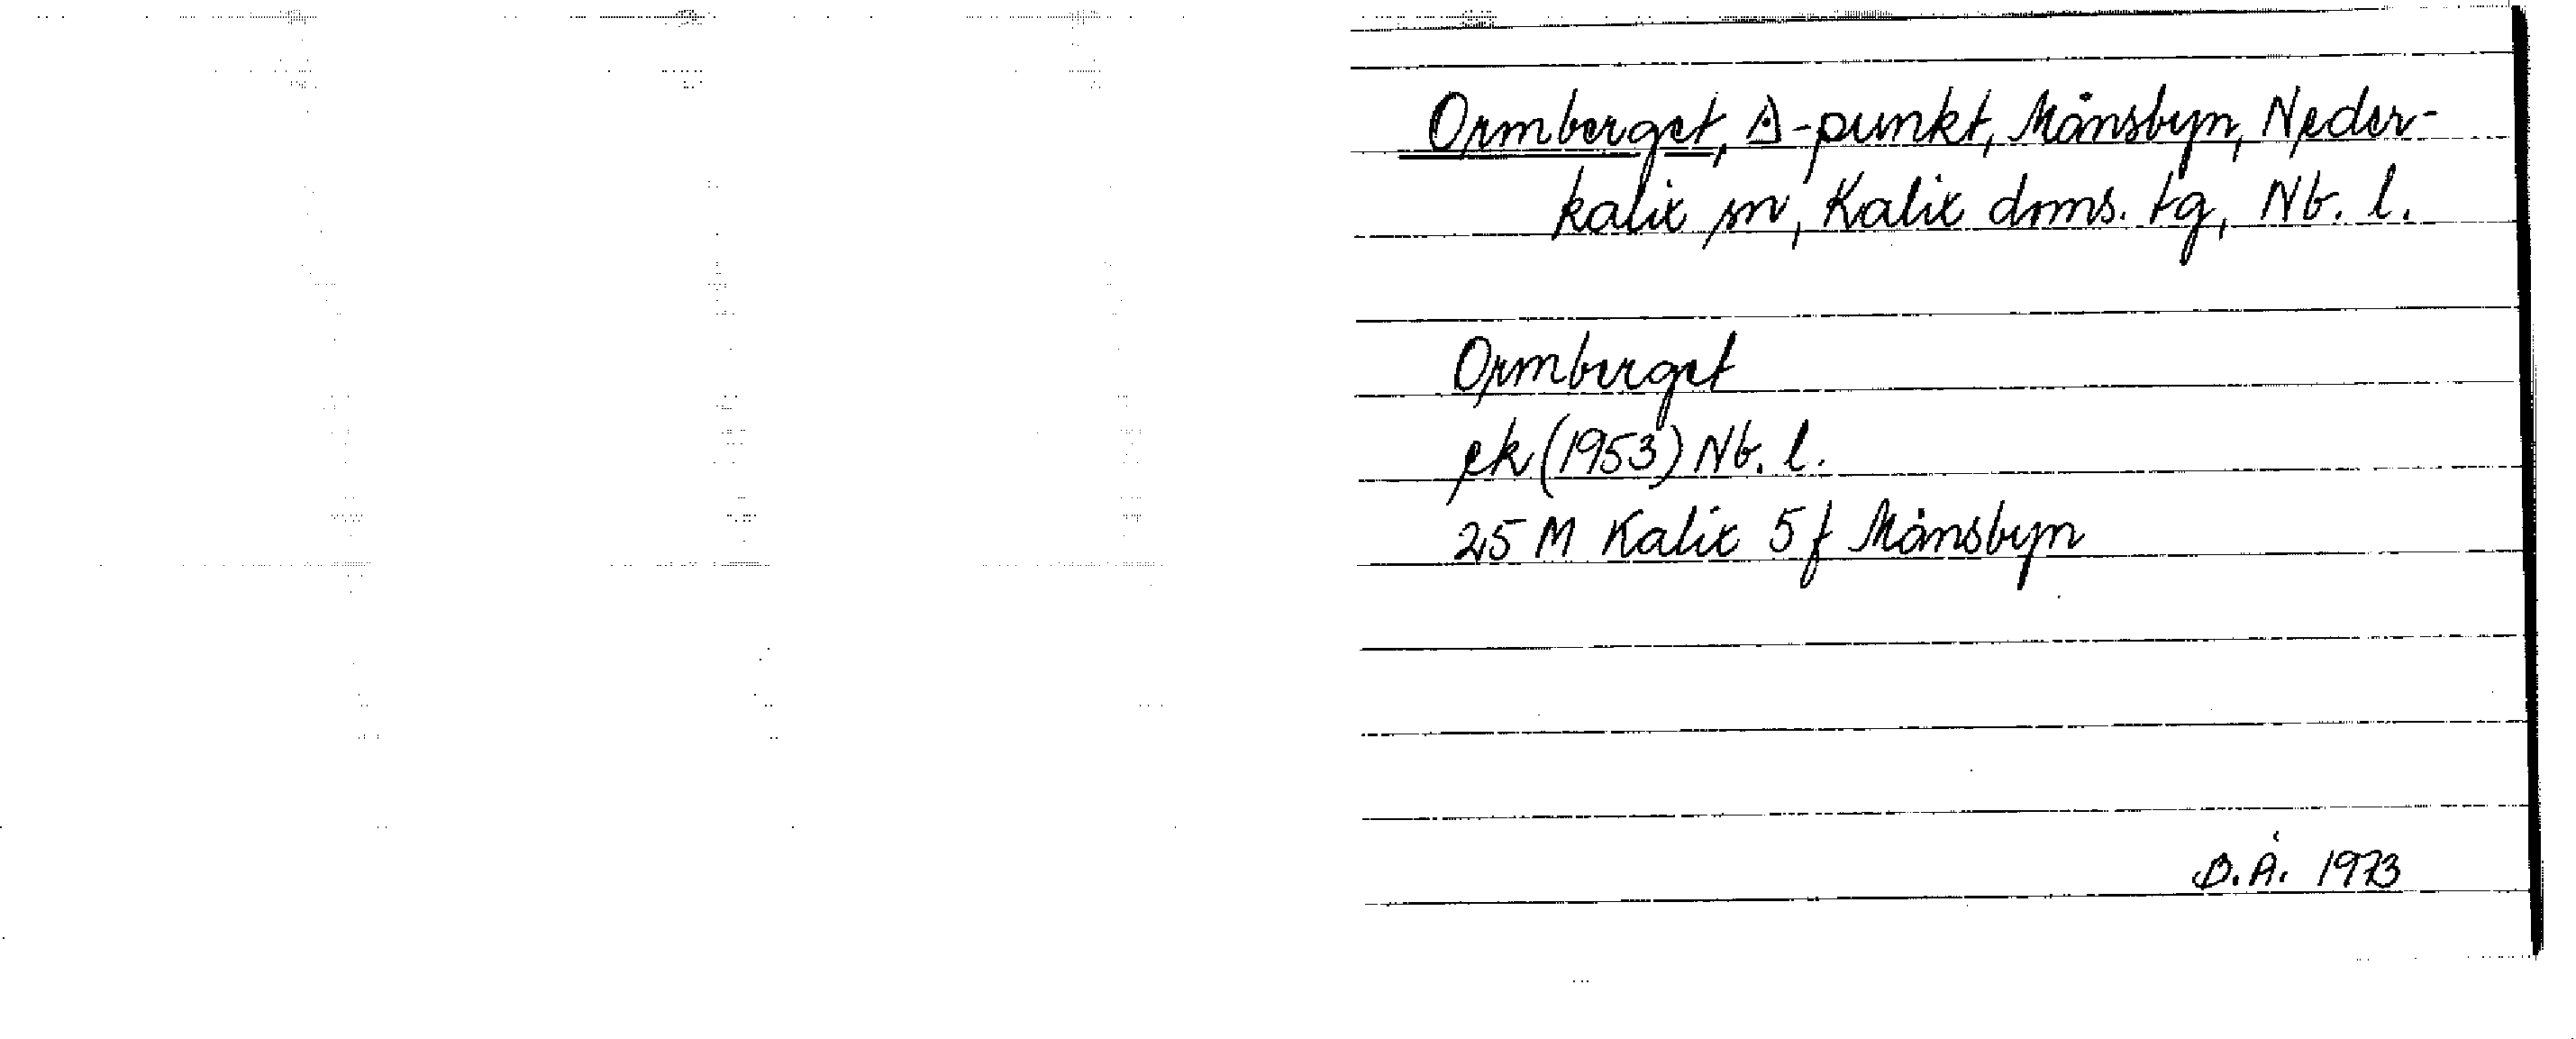 Ormberget, ◬-punkt, Månsbyn, Neder-
kalix sn, Kalix doms. tg, Nb. l.
Ormberget
ek (1953) Nb. l.
25 M Kalix 5 f Månsbyn
B.Å. 1973